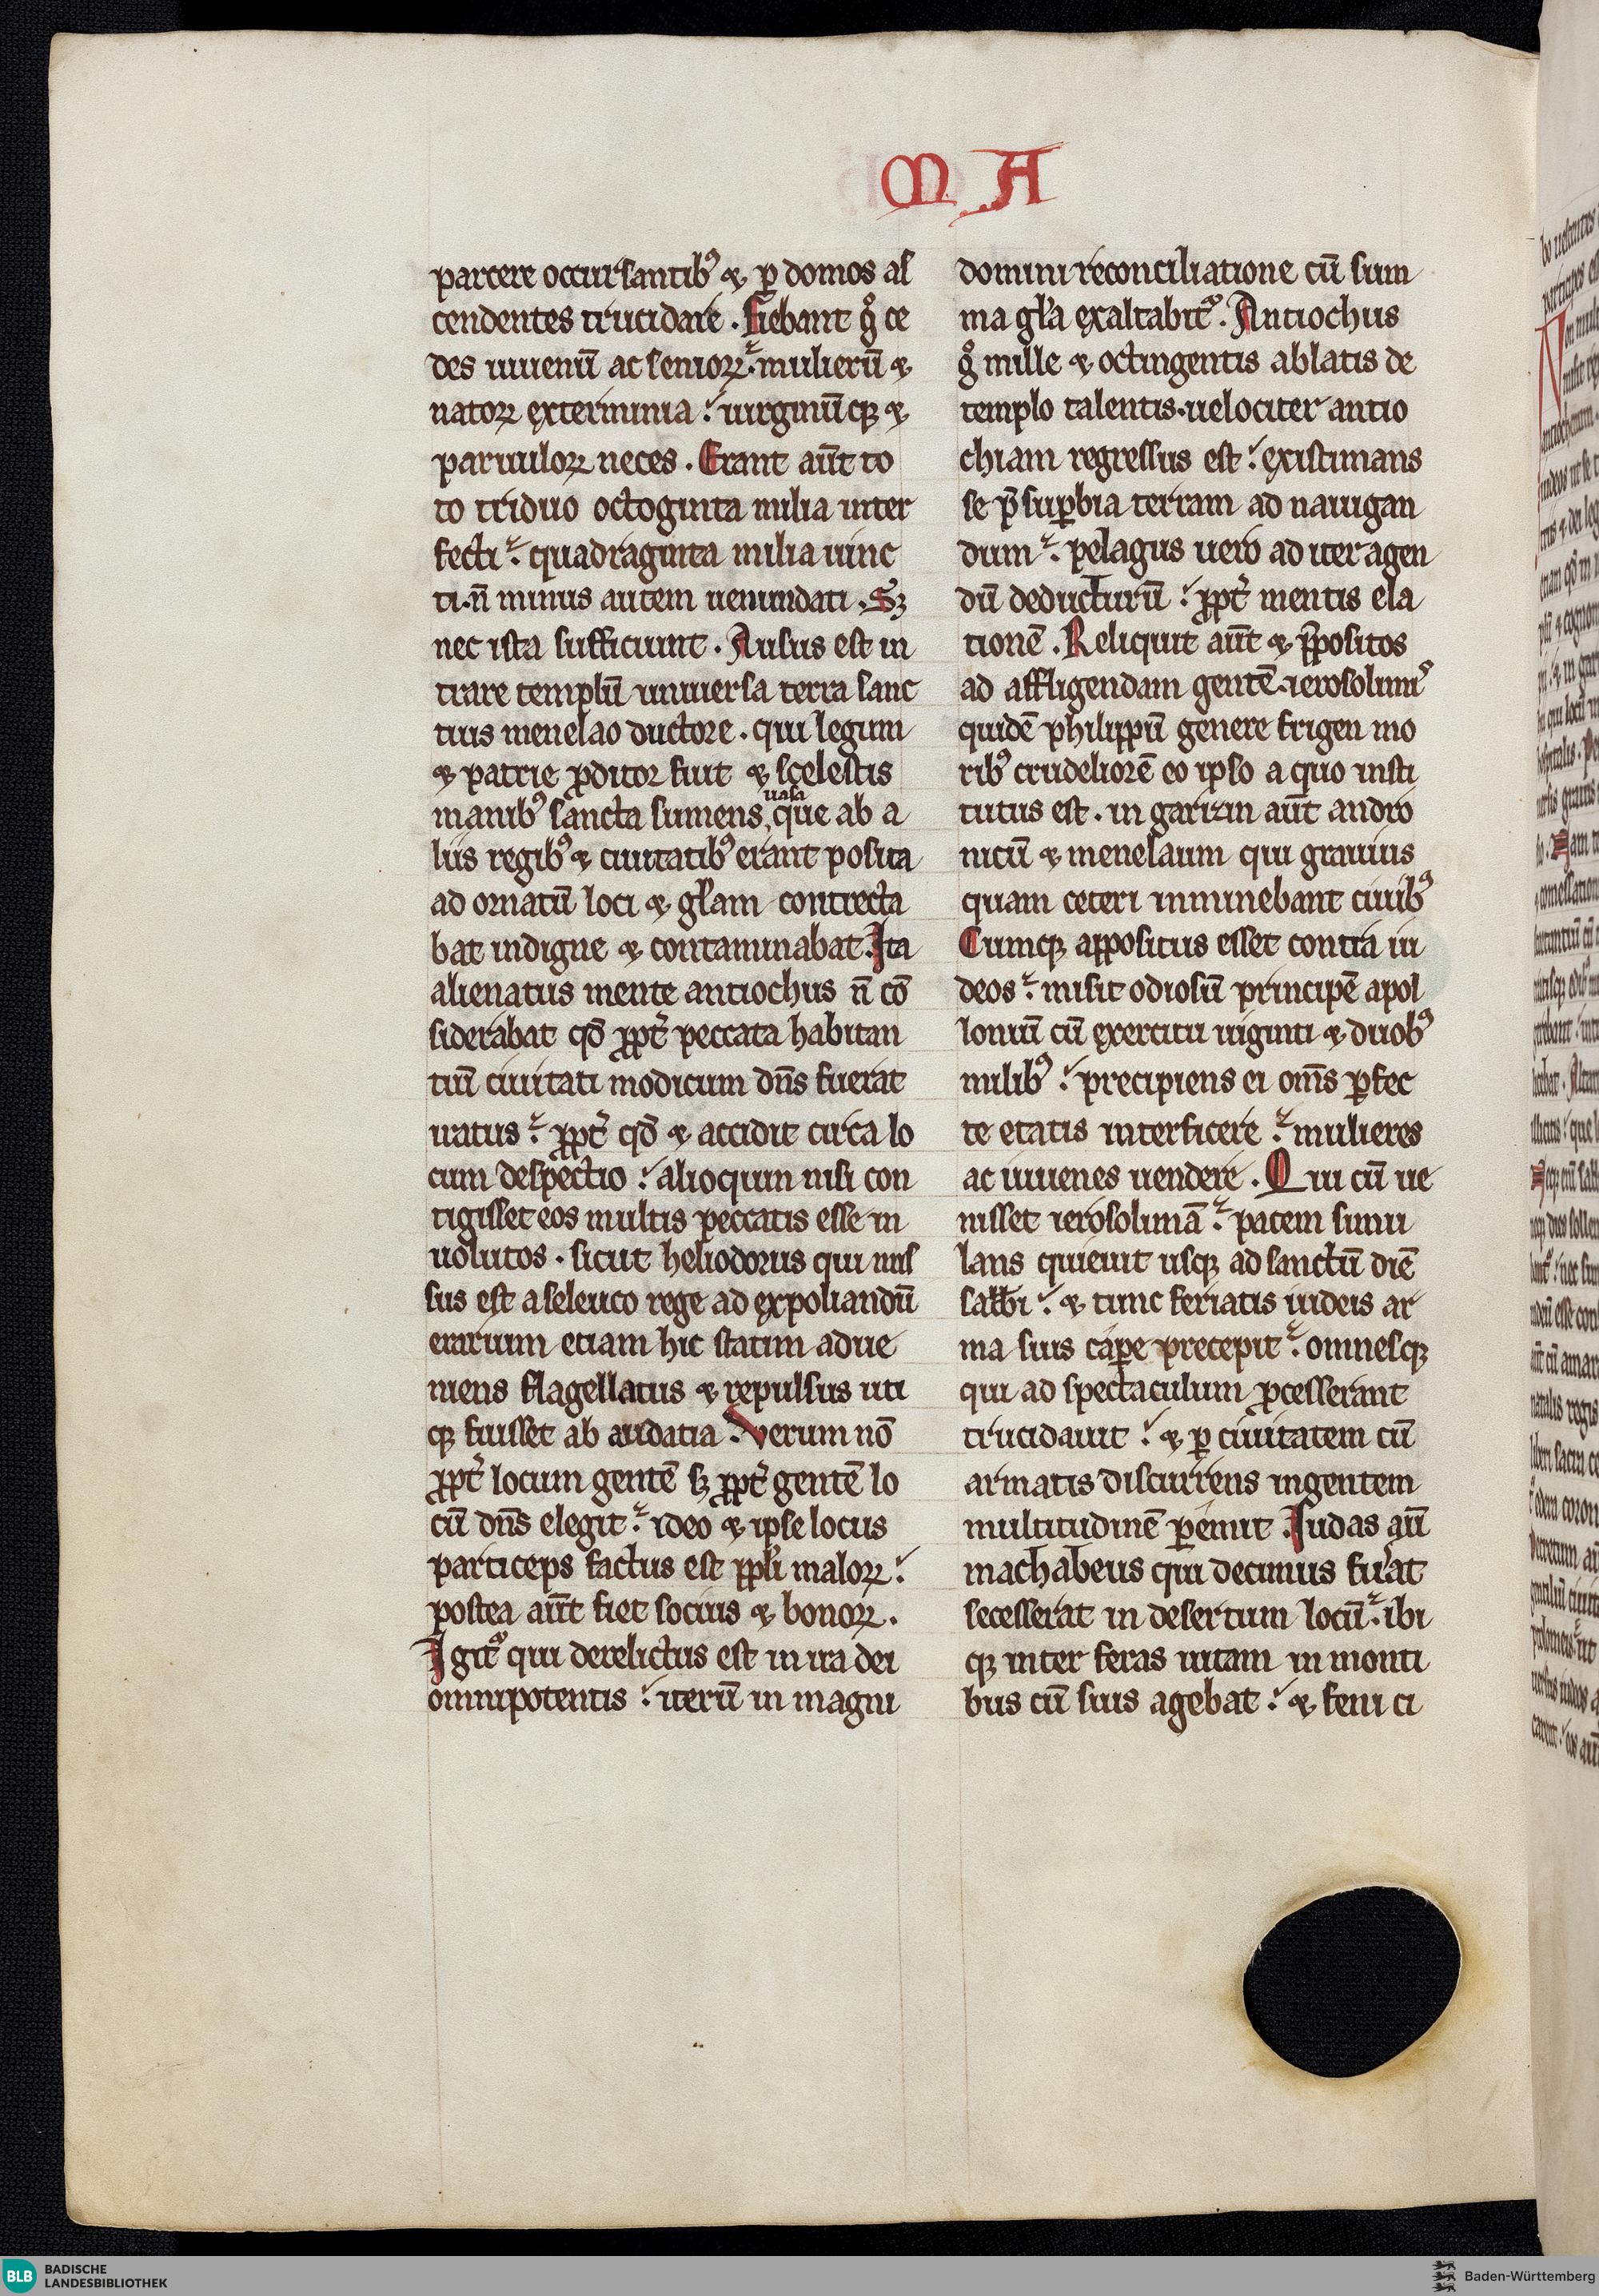 M A
parcere occursantib⁹ ⁊ ꝑ domos as
cendentes trucidare . Fiebant gͦ ce
des iuuenū ac senioꝝ . mulierū ⁊
natoꝝ exterminia : uirginūq; ⁊
paruuloꝝ neces . Erant aūt to
to triduo octoginta milia inter
fecti : quadraginta milia uinc
ti . n̄ minus autem uenundati . Sꝫ
nec ista sufficiunt . Ausus est in
trare templū uniuersa terra sanc
tius menelao ductore . qui legum
⁊ patrie ꝓditor fuit ⁊ scelestis
manib⁹ sancta sumens uasa que ab a
liis regib⁹ ⁊ ciuitatib⁹ erant posita
ad ornatū loci ⁊ gl̄am contrecta
bat indigne ⁊ contaminabat . Ita
alienatus mente antiochus n̄ cō
siderabat qd̄ ꝓpt̄ peccata habitan
tiū ciuitati modicum dn̄s fuerat
iratus : ꝓpt̄ qd̄ ⁊ accidit circa lo
cum despectio : alioquin nisi con
tigisset eos multis peccatis esse in
uolutos . sicut heliodorus qui mis
sus est a seleuco rege ad expoliandū
erarium etiam hic statim adue
niens flagellatus ⁊ repulsus uti
q; fuisset ab audatia . Verum nō
ꝓpt̄ locum gentē sꝫ ꝓpt̄ gentē lo
cū dn̄s elegit : ideo ⁊ ipse locus
particeps factus est ppl̄i maloꝝ :
postea aūt fiet socius ⁊ bonoꝝ .
Igit᷑ qui derelictus est in ira dei
omnipotentis : iterū in magni
domini reconciliatione cū sum
ma gl̄a exaltabit᷑ . Antiochus
gͦ mille ⁊ octingentis ablatis de
templo talentis . uelociter antio
chiam regressus est : existimans
se p̄ suꝑbia terram ad nauigan
dum : pelagus uero ad iter agen
dū deducturū : ꝓpt̄ mentis ela
tionē . Reliquit aūt ⁊ p̄positos
ad affligendam gentē . ierosolimis
quidē philippū genere frigen mo
rib⁹ crudeliorē eo ipso a quo insti
tutus est . in garizin aūt andro
nicū ⁊ menelaum qui grauius
quam ceteri imminebant ciuib⁹
Cumq; appositus esset contra iu
deos : misit odiosū principē apol
loniū cū exercitu uiginti ⁊ duob⁹
milib⁹ : precipiens ei om̄s ꝑfec
te etatis interficere : mulieres
ac iuuenes uendere . Qui cū ue
nisset ierosolimā : pacem simu
lans quieuit usq; ad sanctū diē
sabb̄i : ⁊ tunc feriatis iudeis ar
ma suis caꝑe precepit : omnesq;
qui ad spectaculum ꝓcesserant
trucidauit : ⁊ ꝑ ciuitatem cū
armatis discurrens ingentem
multitudinē ꝑemit . Iudas aū
machabeus qui decimus fu̾at
secesserat in desertum locū : ibi
q; inter feras uitam in monti
bus cū suis agebat : ⁊ feni ci
BLB BADISCHE
LANDESBIBLIOTHEK
Baden-Württemberg